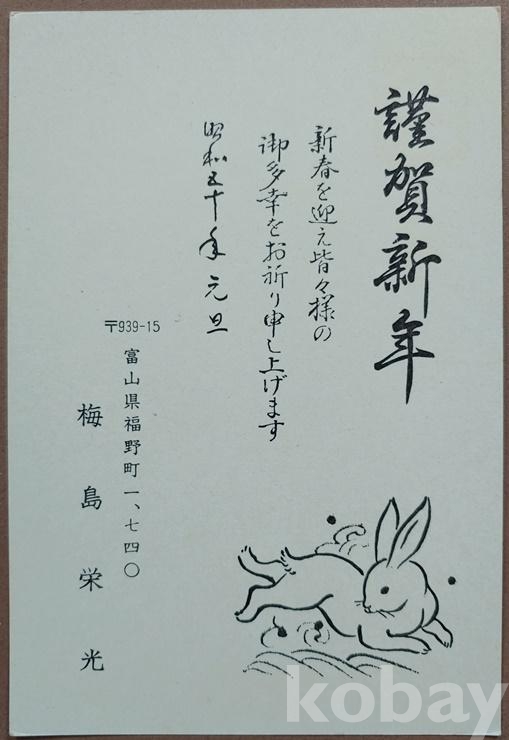 謹賀新年
新春を迎え皆々様の
御多幸をお祈り申し上げます
昭和五十年 元旦
〒939-15
富山県福野町一、七四〇
梅島栄光
kobay